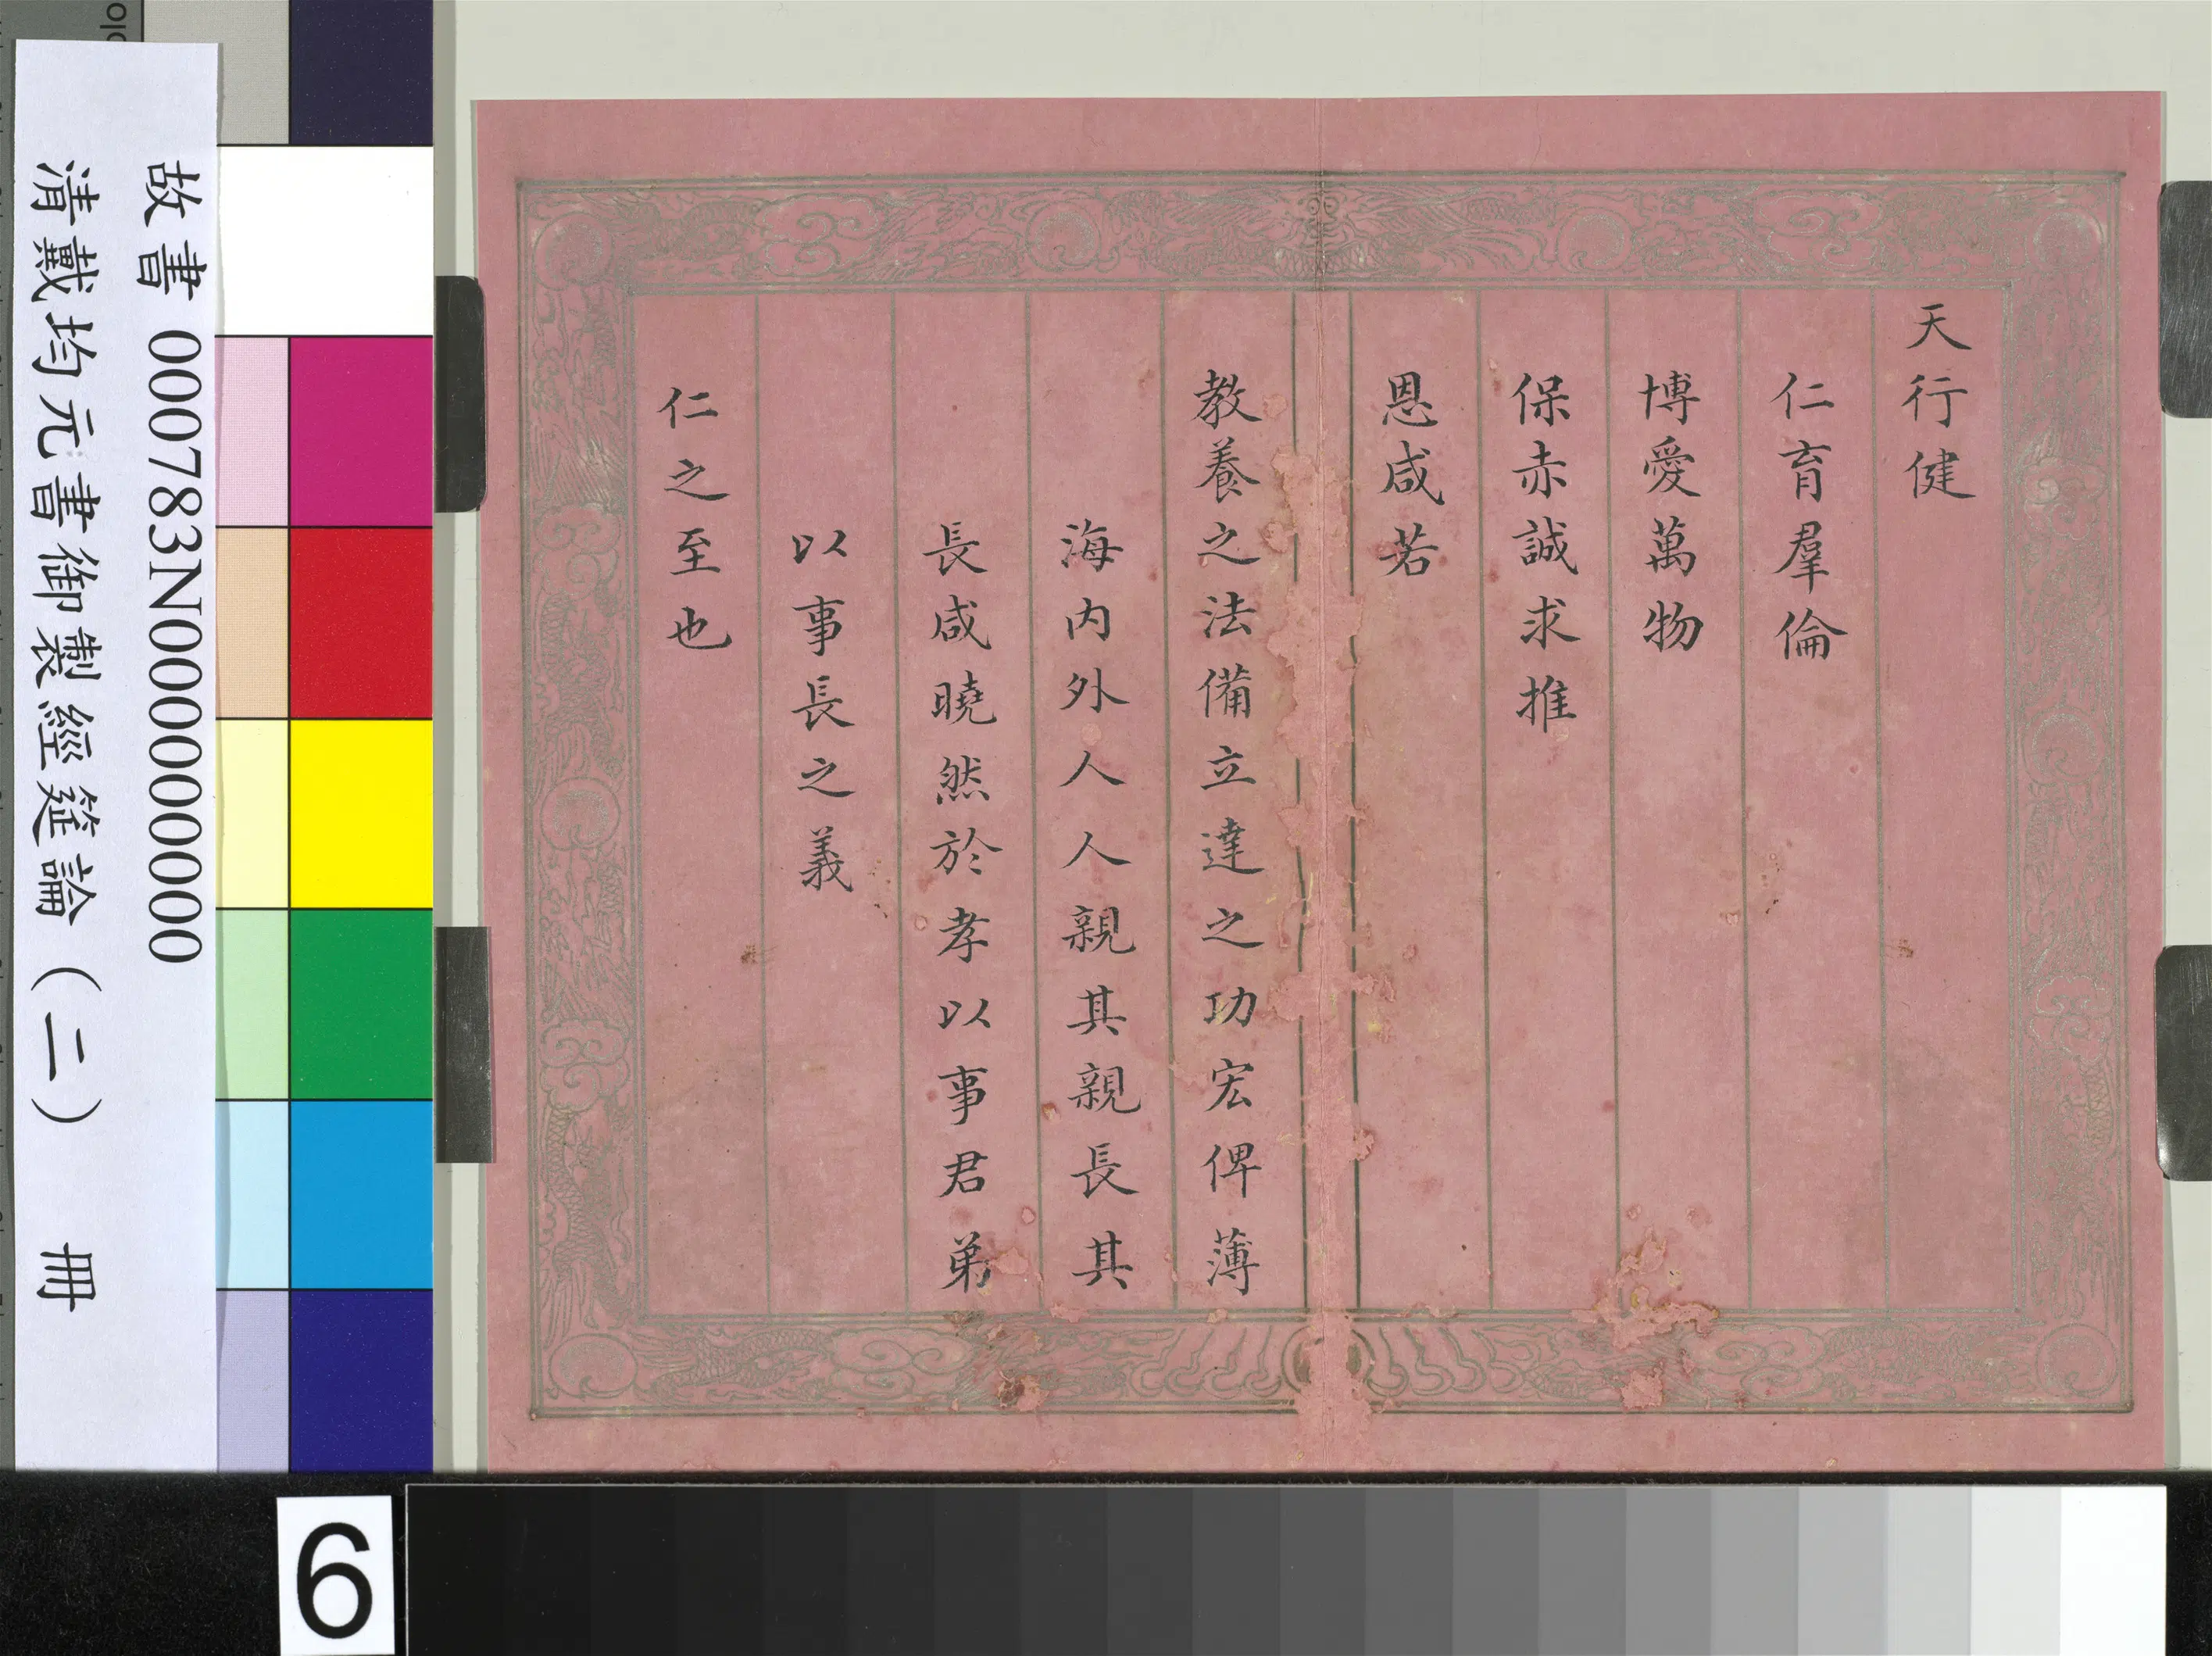 天行健
仁育羣倫
博愛萬物
保赤誠求推
恩咸若
教養之法備立達之功宏俾薄
海內外人人親其親長其
長咸曉然於孝以事君弟
以事長之義
仁之至也
故書 000783N000000000
清戴均元書御製經筵論（二） 冊
6